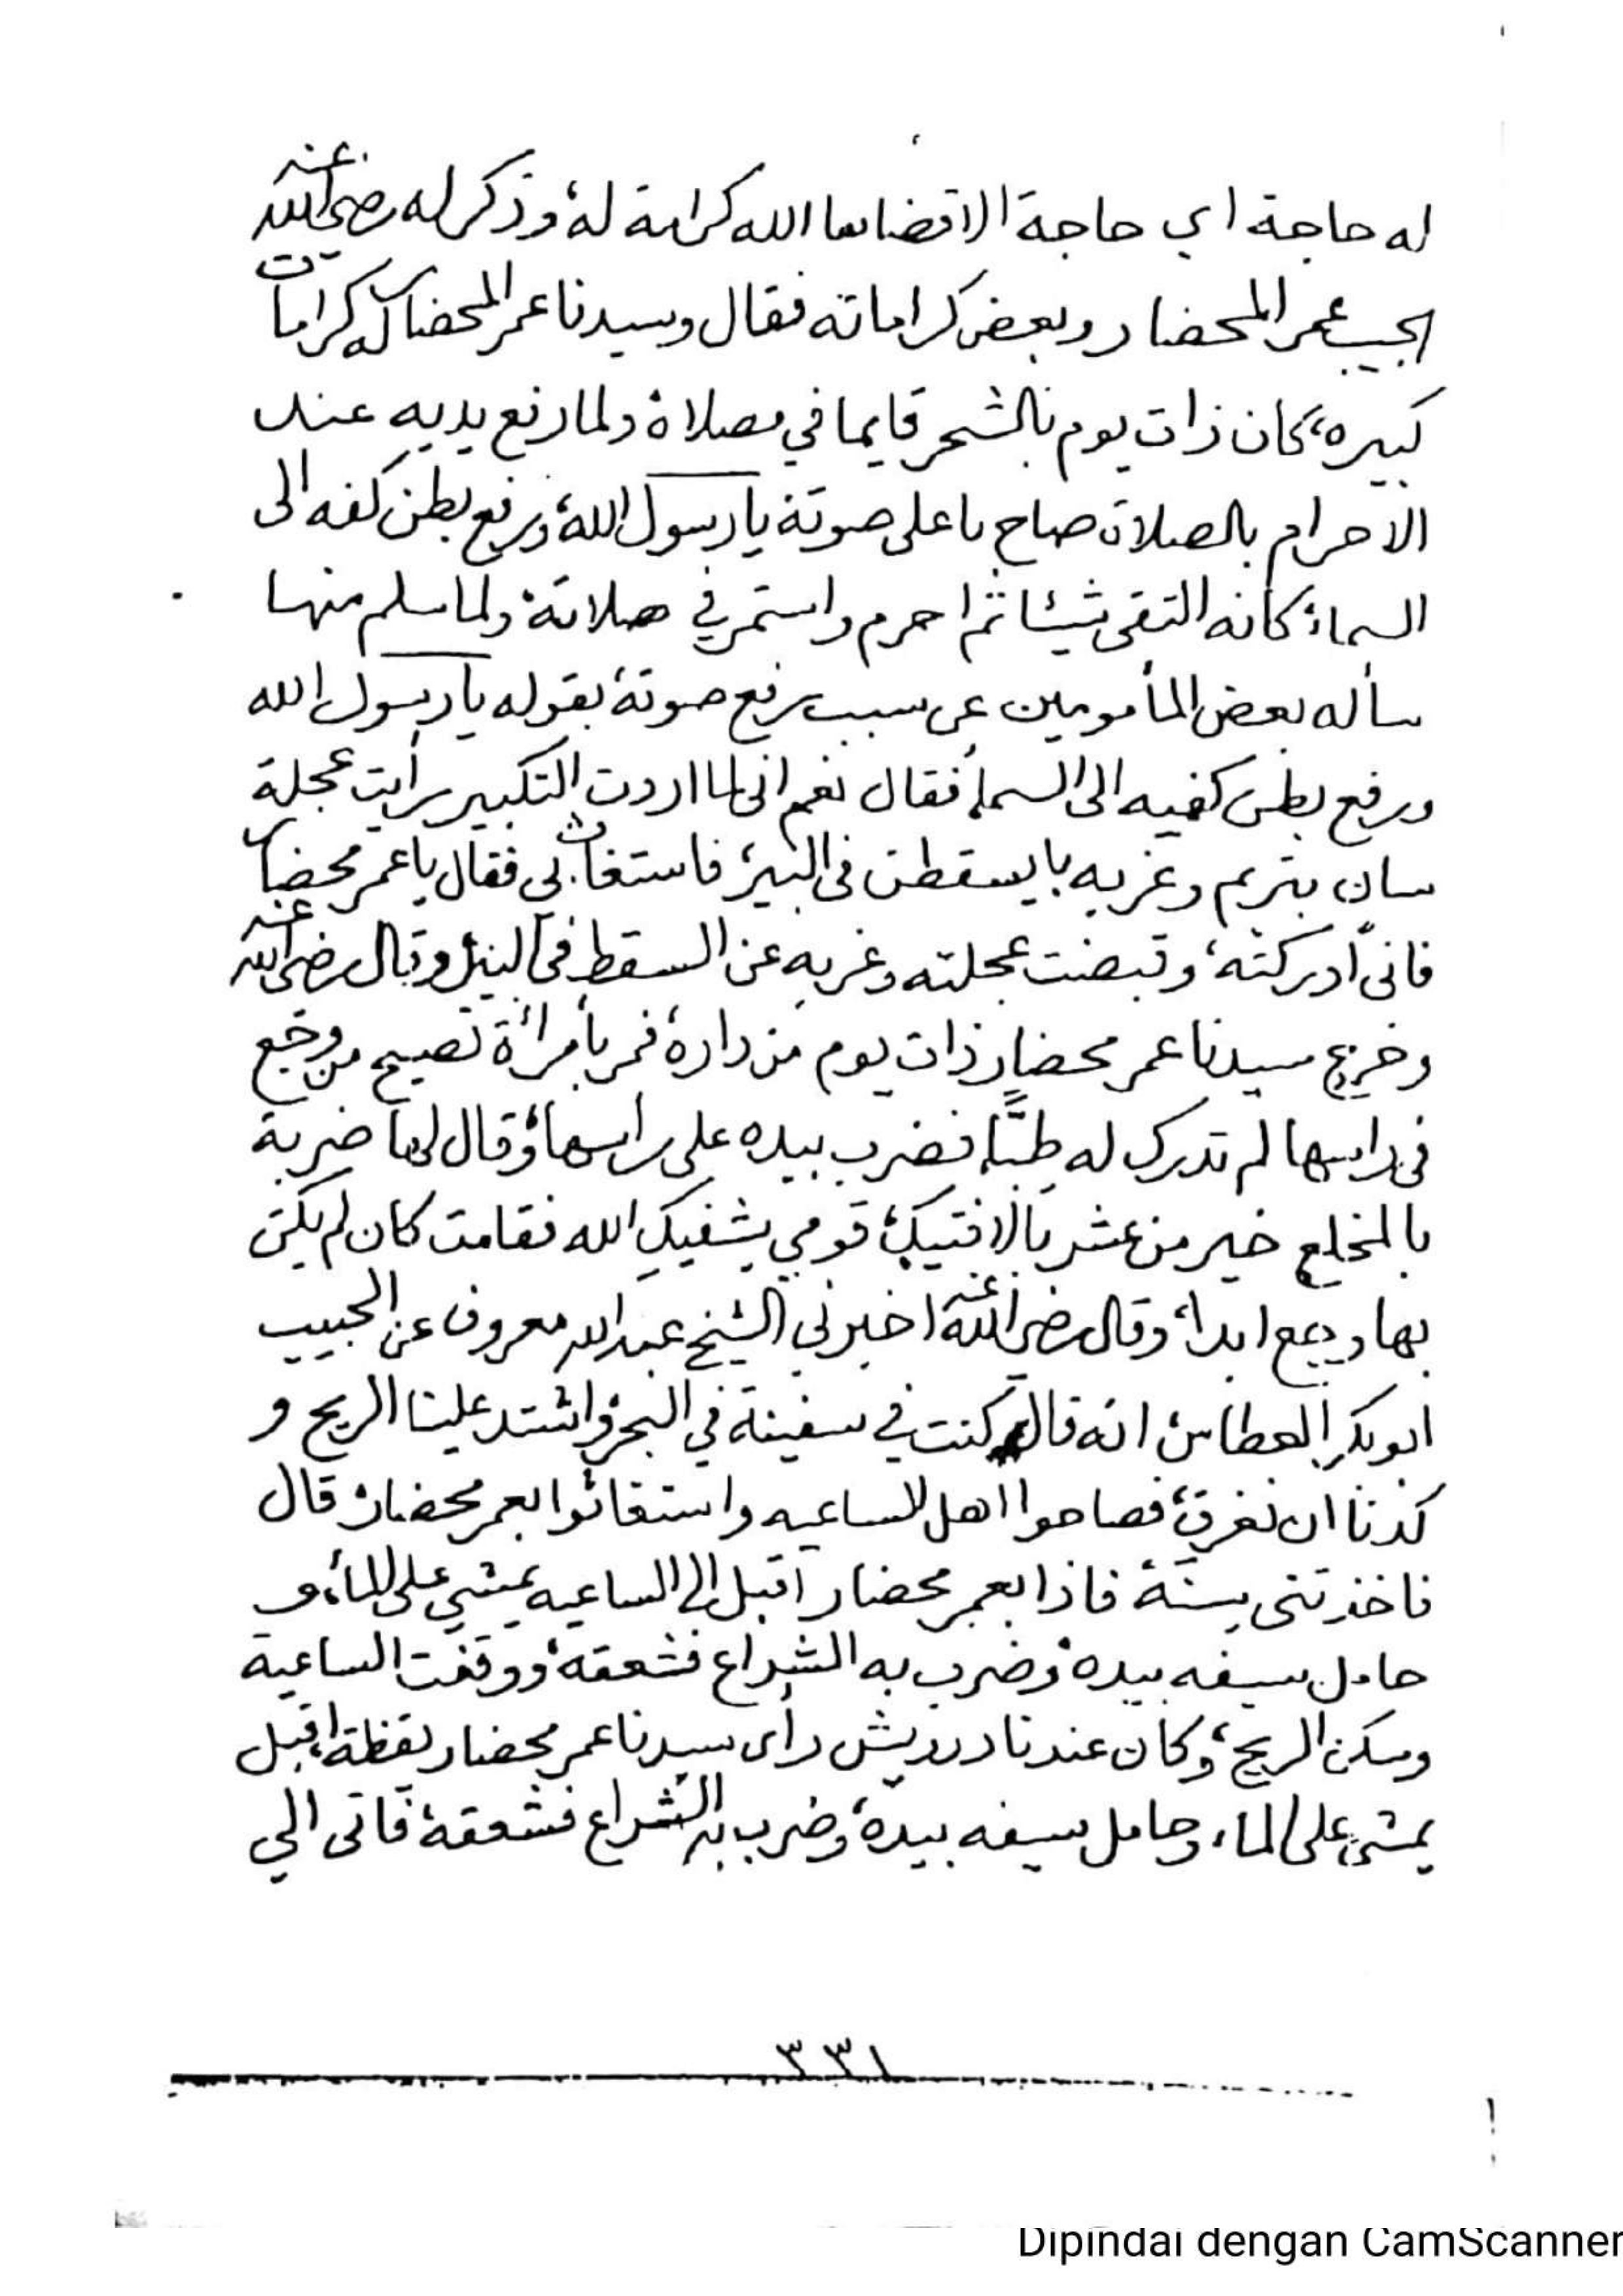 له حاجة اي حاجة الا قضاها الله كرامة له وذكر له رضي الله عنه
الحبيب عمر المحضار وبعض كراماته فقال وسيدنا عمر المحضار له كرامات
كبيره، كان ذات يوم بالشحر قايما في مصلاة ولما رفع يديه عند
الاحرام بالصلاة صاح باعلى صوتة يا رسول الله، ورفع بطن كفه الى
السماء، كانه التقى شيئا ثم احرم واستمر في صلاتة، ولما سلم منها
سأله بعض المأمومين عن سبب رفع صوتة، بقوله يا رسول الله
ورفع بطن كفيه الى السماء فقال نعم انى لما اردت التكبير رأيت عجلة
سان بتريم وغربه بايسقطن فى البئر، فاستغاث بى فقال ياعمر محضار
فانى ادركته، وقبضت عجلته وغربه عن السقط فى البئر، وقال رضي الله عنه
وخرج سيدنا عمر محضار ذات يوم من دارة، فمر بأمرأة تصيح من وجع
فى راسها لم تدرك له طبًّا، فضرب بيده على راسها، وقال لها ضربة
بالمخلع خير من عشر بالافتيك، قومي يشفيكِ الله فقامت كان لم يكن
بها وجع ابدا، وقال رضي الله عنه اخبرنى الشيخ عبدالله معروف عن الحبيب
ابوبكر العطاس، انه قال كنت في سفينة في البحر، واشتد علينا الريح و
كدنا ان نغرق، فصاحوا اهل الساعيه واستغاثوا بعمر محضار، قال
فاخذتنى سِنَة فاذا بعمر محضار اقبل الى الساعيه يمشي على الماء، و
حامل سيفه بيده، وضرب به الشراع فشعقه، ووقفت الساعية
وسكن الريح، وكان عندنا درويش رأى سيدنا عمر محضار يقظة، اقبل
يمشي على الماء، وحامل سيفه بيدة، وضرب به الشراع فشعقة، فاتى الي
٣٣١
Dipindai dengan CamScanner